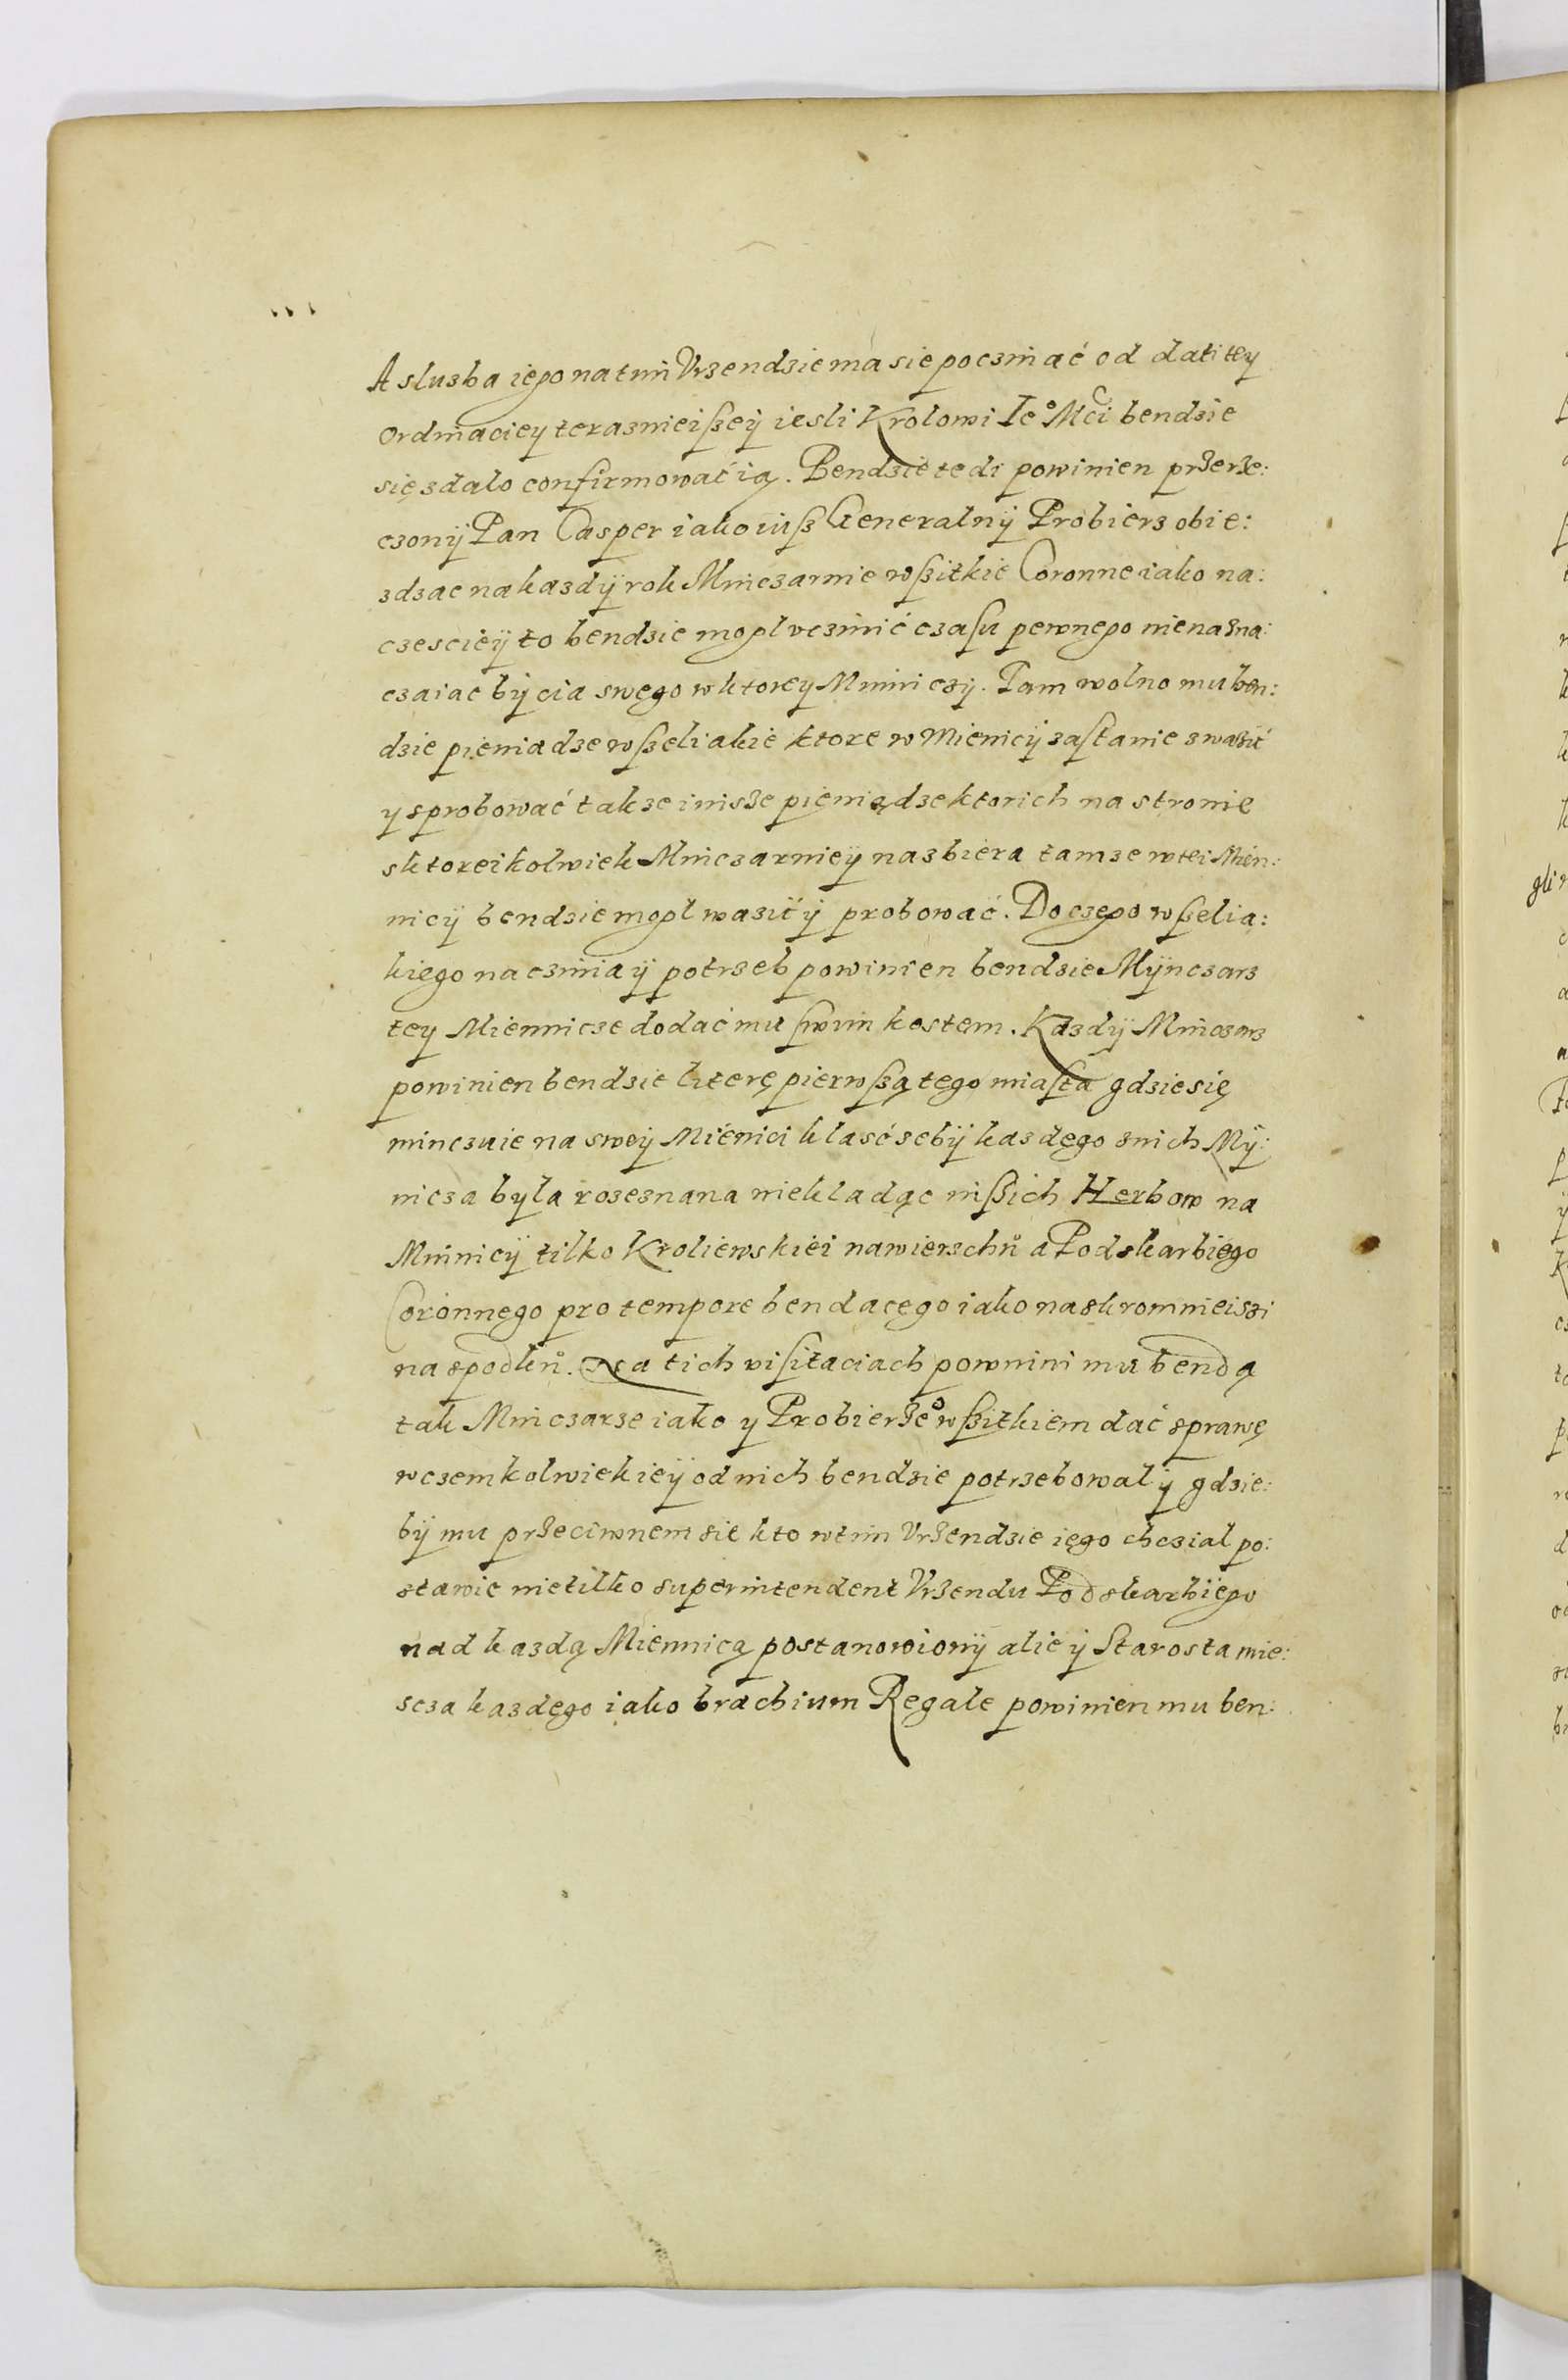 A slusba iego na tim Vrzendzie ma sie poczinać od dati tey
Ordinaciey terasnieißeÿ iesli Krolowi Ie° Mci bendzie
się zdalo confirmować ią. Bendzie tedi powinien przerze:
czonÿ Pan Casper iako iuß Generalnÿ Probierz obie:
zdzac na kazdÿ rok Minczarnie wßitkie Coronne iako na:
czesciéÿ to bendzie mogl vczinić czasu pewnego nienazna:
czaiac bÿcia swego w ktorey Minniczÿ. Tam wolno mu ben:
dzie pieniadze wßeliakie ktore w Mienicÿ zastanie zwazić
y sprobować takze inisze pieniądze ktorich na stronie
s ktoreikolwiek Minczarnieÿ nazbiera tamze w tei Mien:
nicÿ bendzie mogl wazić ÿ probować. Do czego wßelia:
kiego naczinia ÿ potrzeb powinien bendzie Mÿnczarz
tey Miennicze dodać mu swim kostem. Kazdÿ Minczarz
powinien bendzie literę pierwßą tego miasta gdzie się
minczuie na swey Mienici klasć zebÿ kazdego znich Mÿ:
nicza byla rozeznana niekladąc inßich Herbow na
Minnicÿ tilko Kroliewskiei na wierschů a Podskarbiego
Coronnego pro tempore bendacego iako naskromnieiszi
na spodků. Na tich visitaciach pownini mu bendą
tak Minczarze iako y Probierze o wßitkiem dać sprawę
w czemkolwiek ieÿ od nich bendzie potrzebowal ÿ gdzie:
bÿ mu przeciwnem sie kto w tim Vrzendzie iego chczial po:
stawic nietilko superintendent Vrzendu Podskarbiego
nad kazdą Miennicą postanowionÿ alie ÿ Starosta mie:
scza kazdego iako brachium Regale powinien mu ben: